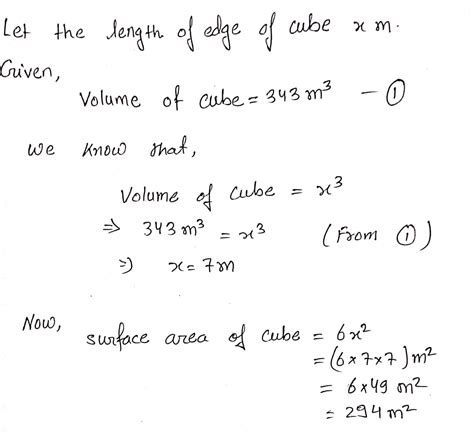 Let the length of edge of cube x m.
Given,
Volume of cube = 343 m³ — ①
We know that,
Volume of cube = x³
⇒ 343 m³ = x³ (From ①)
⇒) x = 7m
Now, surface area of cube = 6x²
= (6 x 7 x 7) m²
= 6 x 49 m²
= 294 m²